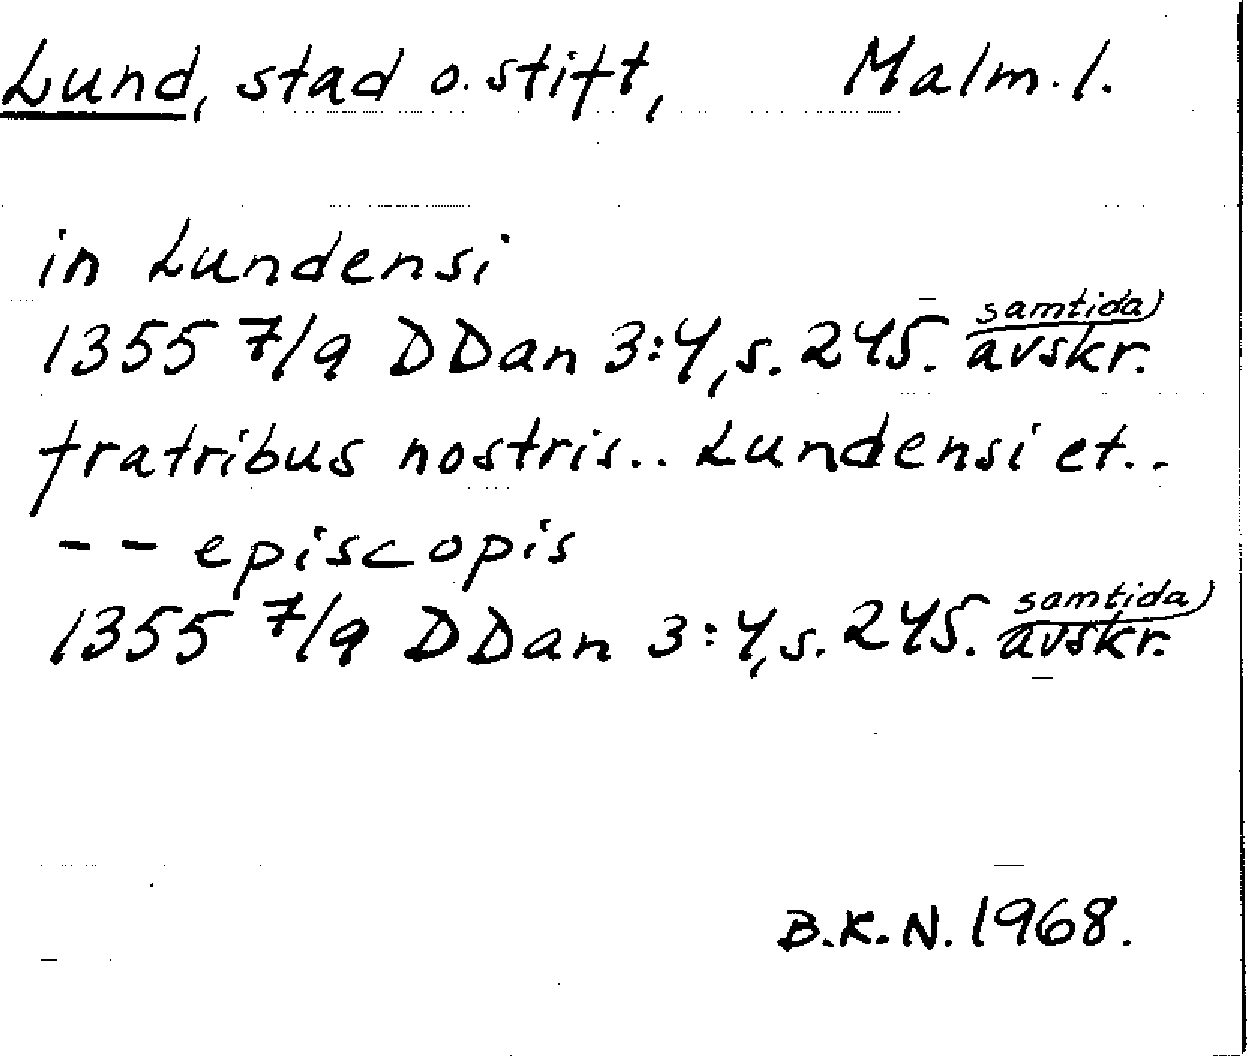 Lund, stad o. stift, Malm. l.
in Lundensi
1355 7/9 DDan 3:4, s. 245. samtida avskr.
fratribus nostris.. Lundensi et..
-- episcopis
1355 7/9 DDan 3:4, s. 245. samtida avskr.
B.K.N. 1968.